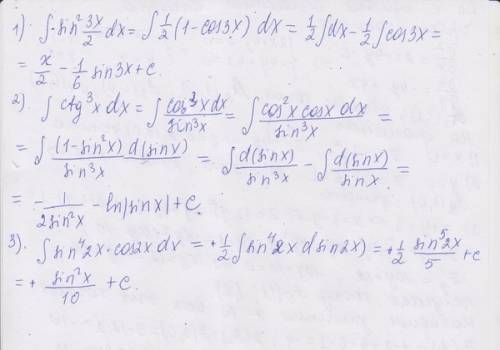 1). ∫ sin² 3x/2 dx = ∫ 1/2 (1 - cos3x) dx = 1/2 ∫dx - 1/2 ∫cos3x =
= x/2 - 1/6 sin3x + c.
2). ∫ ctg³x dx = ∫ cos³x dx / sin³x = ∫ cos²x cosx dx / sin³x =
= ∫ (1-sin²x) d(sinx) / sin³x = ∫ d(sinx) / sin³x - ∫ d(sinx) / sinx =
= - 1 / 2sin²x - ln|sinx| + C.
3). ∫ sin⁴2x · cos2x dx = + 1/2 ∫ sin⁴2x d sin2x) = + 1/2 sin⁵2x / 5 + c
= + sin²x / 10 + c.